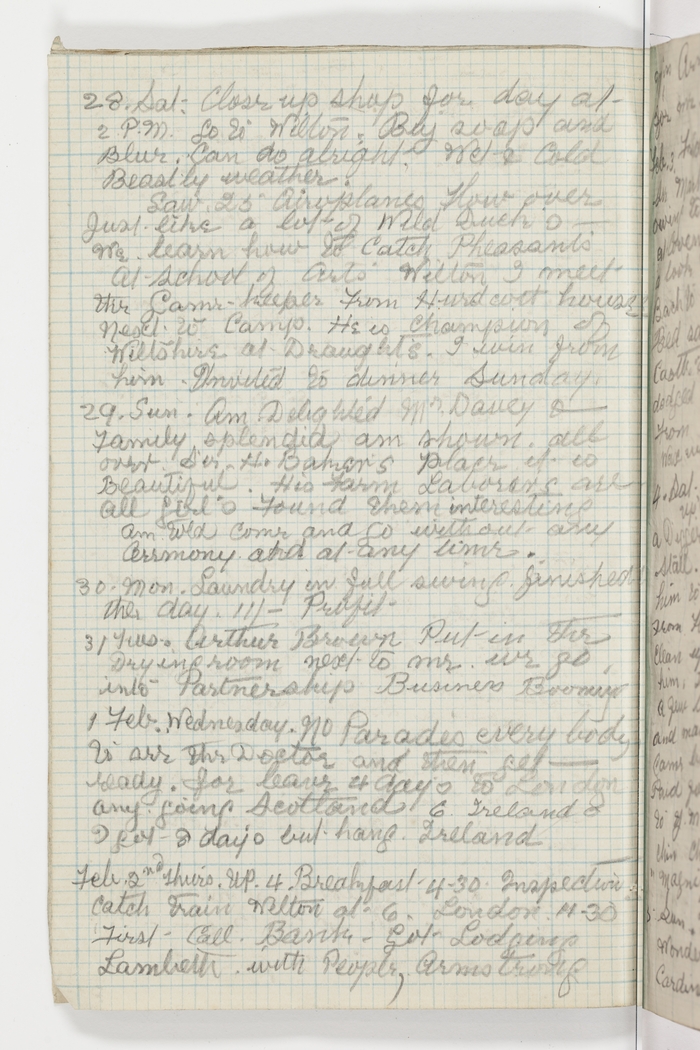 28. Sat. Close up shop for day at
2 P.M. Go to Wilton. Buy soap and
Blur. Can do alright. Wet & Cold
Beastly weather.
Saw 25 Airoplanes flow over
Just like a lot of Wild Duck's
We learn how to Catch Pheasants
at School of Arts Wilton I meet
the Game-keeper From Hurdcott house
Next to Camp. He is Champion of
Wiltshire at Draughts. I win from
him. Invited to dinner Sunday.
29. Sun. Am Delighted Mr. Davey &
Family splendid am shown all
over Sir. H. Baker's Place it is
Beautiful. His Farm Laborers are
all girl's Found them interesting
am told come and Go without any
Cerrmony and at any time.
30. Mon. Laundry in full swing finished
the day. 11/- Profit
31 Tues. Arthur Brown Put in the
Drying room next to me. we go
into Partnership Business Booming
1 Feb. Wednesday. No Parades every body
to see the Doctor and then get
ready. for leave 4 days to London
any going Scotland 6. Ireland 8
I got 8 days but hang Ireland
Feb. 2nd Thurs. UP. 4. Breakfast 4-30 Inspection
Catch Train Wilton at 6. London.
First Call. Bank - Got Lodging
Lambeth with People, Armstrong